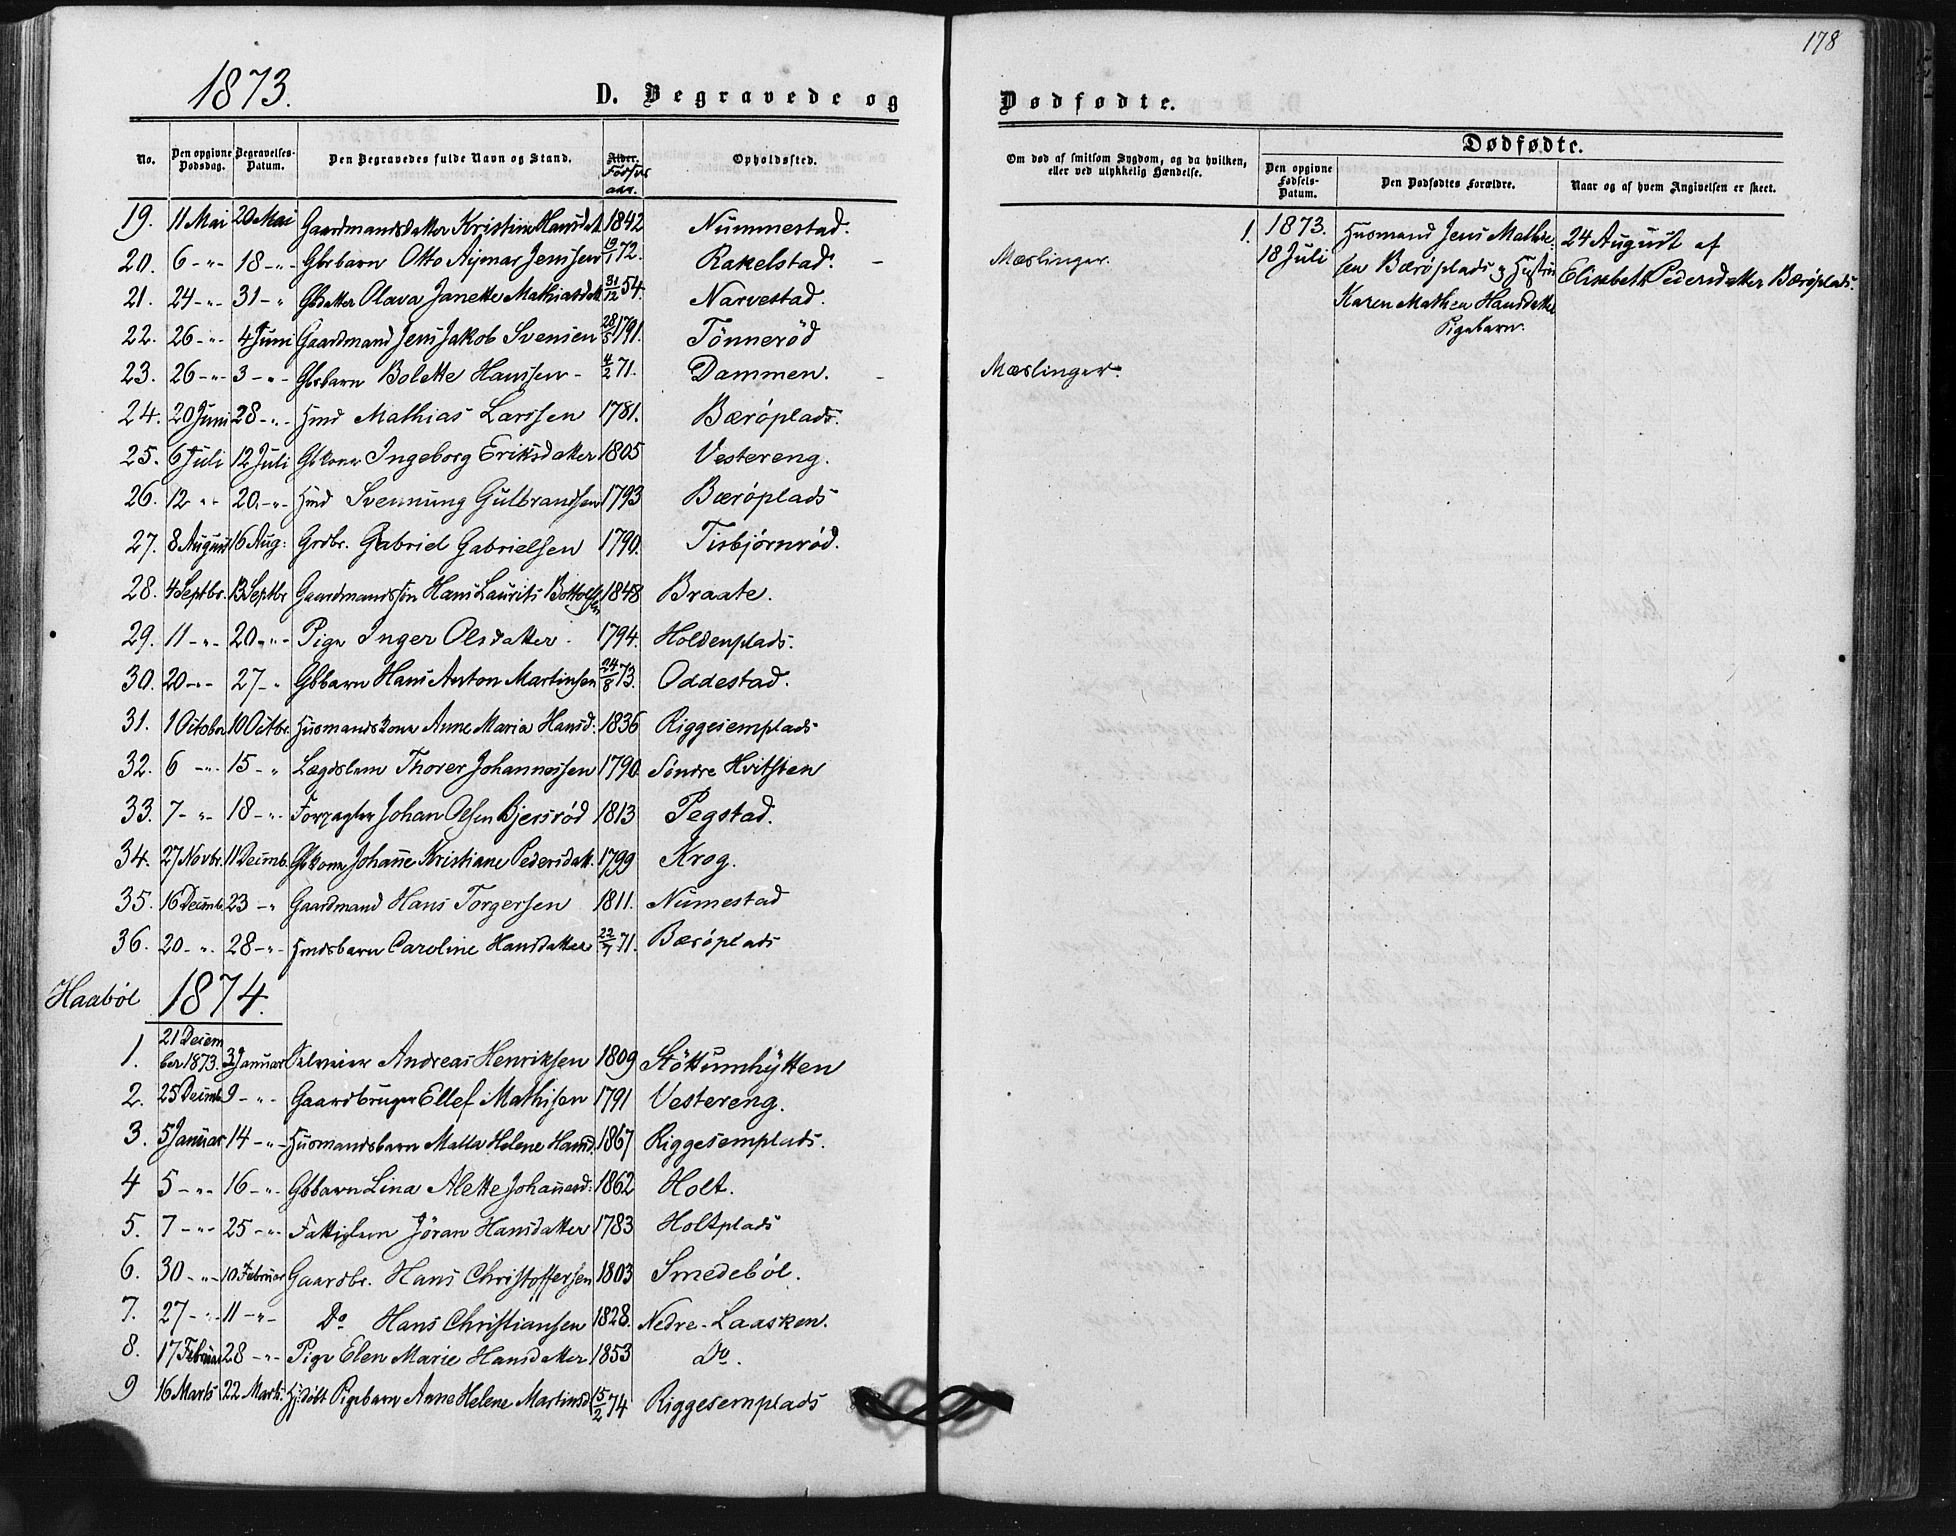 178
1873.
D. Begravede og
Dødfødte.
No. Den opgivne Dødsdag. Begravelses-Datum. Den Begravedes fulde Navn og Stand. Alder. Fødselsaar. Opholdssted.
19. 11 Mai 20 Mai Gaardmandsdatter Kristine Hansdat. 1842 Nummestad.
20. 6 -"- 18 -"- Gbrbarn Otto Ajmar Jenssen 19/1 72. Rakelstad. -
21. 24 -"- 31 -" Gbdatter Olava Janette Mathiasdatt. 31/12 54. Narvestad.
22. 26 -"- 4 Juni Gaardmand Jens Jakob Svensen 28/5 1791. Tönnerød
23. 26 -"- 3 -"- Gbrbarn Bolette Hanssen - 4/2 71. Dammen. -
24. 20 Juni 28 -"- Hmd Mathias Larssen 1781. Bæröplads.
25. 6 Juli 12 Juli Gbkone Ingeborg Eriksdatter 1805 Vestereng.
26. 12 " - 20 -"- Hmd Svennung Gulbrandsen 1793 Bæröplads
27. 8 August 16 Aug: Grdbr. Gabriel Gabrielsen 1790. Tisbjørnrød.
28. 4 Septbr. 13 Septbr Gaardmandssøn Hans Laurits Bottolfsen 1848 Braate.
29. 11 -"- 20 -"- Pige Inger Olsdatter. 1794. Holdenplads.
30. 20 -"- 27 -" Gbbarn Hans Anton Martinsen 24/8 73. Oddestad.
31. 1 October 10 Octbr. Husmandskone Anne Maria Hansd: 1836 Riggesemplads
32. 6 -"- 15 -" Lægdslem Thorer Johannessen 1790 Søndre Hvitsten
33. 7 -"- 18 -"- Forpagter Johan Olsen Bjersrød 1813 Pegstad.
34. 27 Novbr. 11 Decemb. Gbkone Johanne Kristiane Pedersdatt. 1799 Krog.
35. 16 Decemb. 23 -" Gaardmand Hans Torgersen 1811. Numestad
36. 20 -"- 28 -"- Hmdsbarn Caroline Hansdatter 22/7 71. Bæröplads
Haabøl 1874.
1. 21 December 1873. 3 Januar Selveier Andreas Henriksen 1809 Støttumhytten
2. 25 Decemb. 9 -"- Gaardbruger Ellef Mathisen 1791 Vestereng.
3. 5 Januar 14 -"- Husmandsbarn Malla Helene Hansd. 1867 Riggesemplads.
4 5 -"- 16 -"- Gbbarn Lina Alette Johannesd: 1862 Holt.
5. 7 -"- 25 -"- Fattiglem Jöran Hansdatter 1783 Holtplads
6. 30 -"- 10 Februar Gaardbr. Hans Christoffersen 1803 Smedebøl.
7. 27 -"- 11 -"- Do Hans Christiansen 1828. Nedre-Laasken.
8. 17 Februar 28 -"- Pige Elen Marie Hansdatter 1853 Do.
9 16 Marts 22 Marts. Hj.døbt Pigebarn Anne Helene Martinsd 15/2 74 Riggesemplads
Om død af smitsom Sygdom, og da hvilken, eller ved ulykkelig Hændelse.
Dødfødte.
Den opgivne Fødsels-Datum. Den Dødfødtes Forældre. Naar og af hvem Angivelsen er skeet.
Mæslinger.
Mæslinger.
1. 1873. Husmand Jens Mathie- 24 August af
18 Juli sen Bæröplads og Hustru Elisabeth Pedersdatter Bæröplads.
Karen Mathea Hansdatter
Pigebarn.